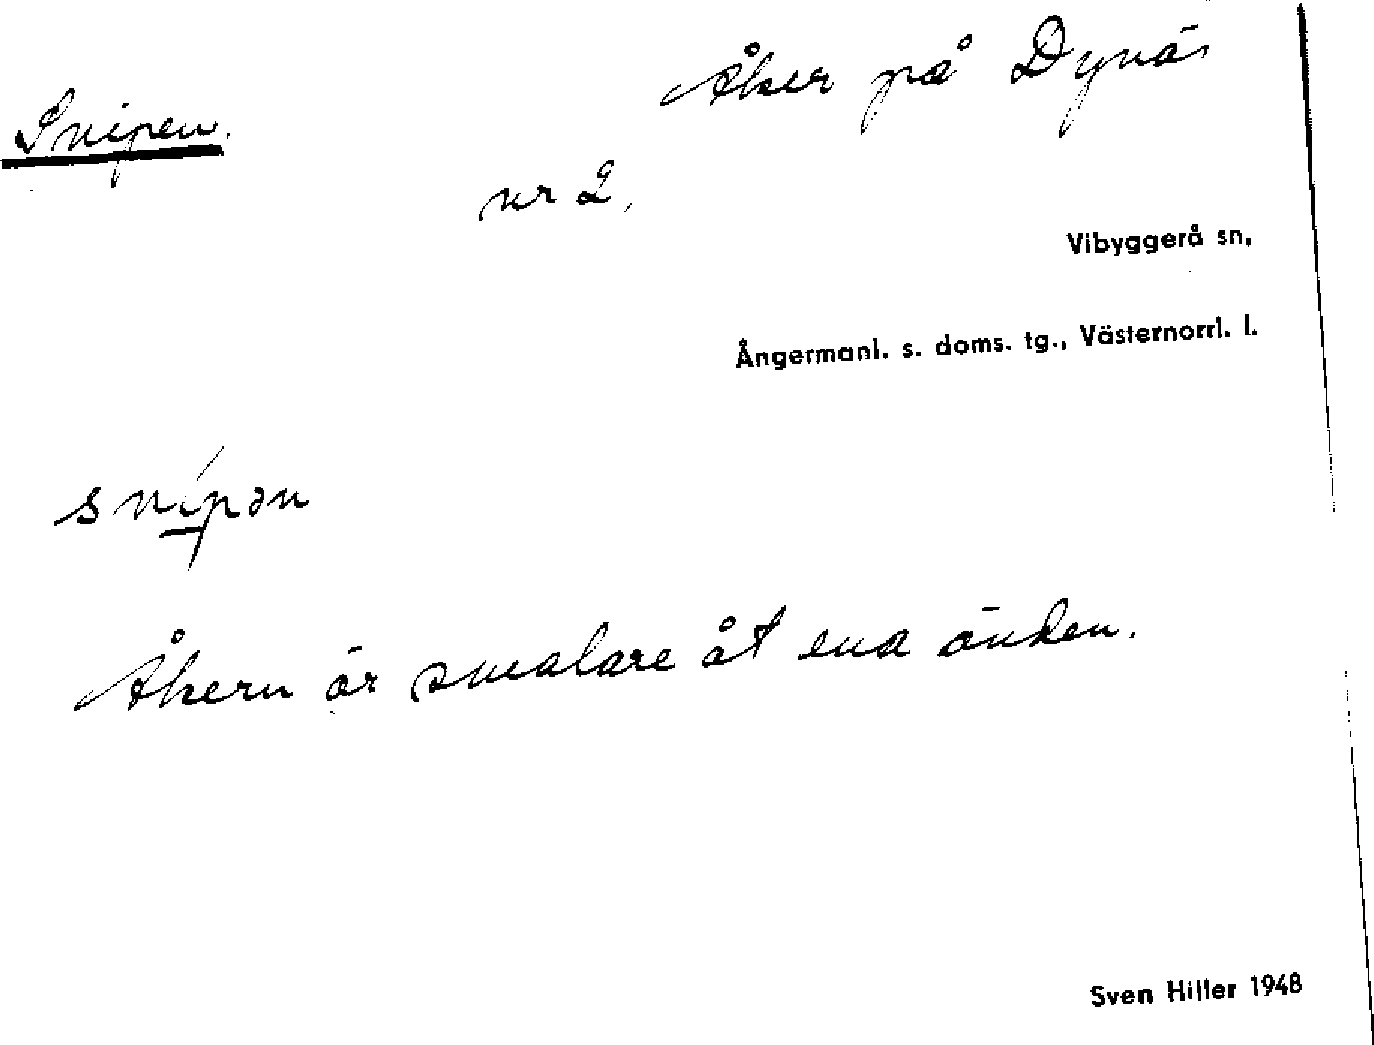 Snipen.
Åker på Dynäs
nr 2,
Vibyggerå sn,
Ångermanl. s. doms. tg., Västernorrl. l.
snípən
Åkern är smalare åt ena änden.
Sven Hiller 1948